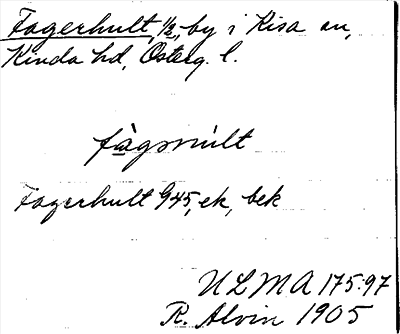 Fagerhult, 1/2, by i Kisa sn,
Kinda hd, Österg. l.
fàgərúlt
Fagerhult G45, ek, bek
ULMA 175:97
R. Alvin 1905